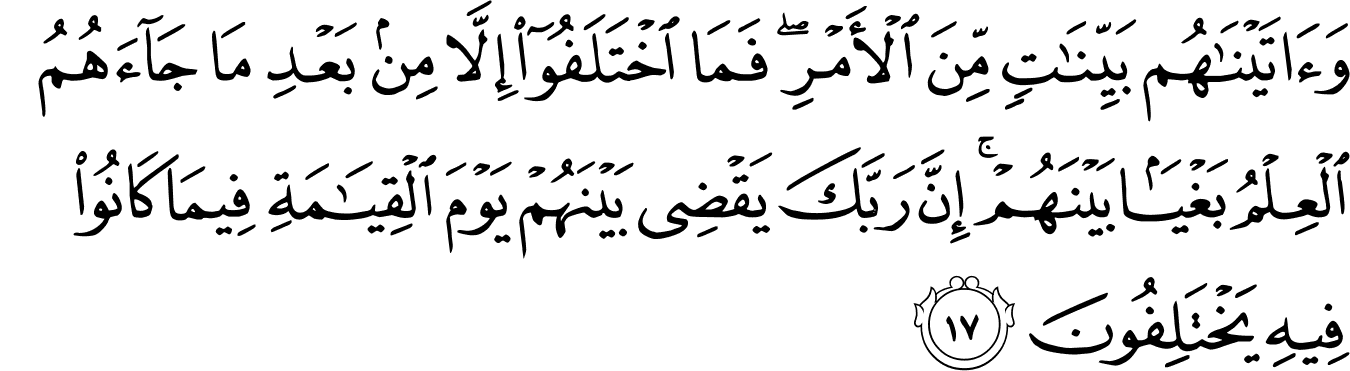 وَءَاتَيْنَٰهُم بَيِّنَٰتٍ مِّنَ ٱلْأَمْرِ ۖ فَمَا ٱخْتَلَفُوٓا۟ إِلَّا مِنۢ بَعْدِ مَا جَآءَهُمُ
ٱلْعِلْمُ بَغْيًۢا بَيْنَهُمْ ۚ إِنَّ رَبَّكَ يَقْضِى بَيْنَهُمْ يَوْمَ ٱلْقِيَٰمَةِ فِيمَا كَانُوا۟
فِيهِ يَخْتَلِفُونَ ١٧